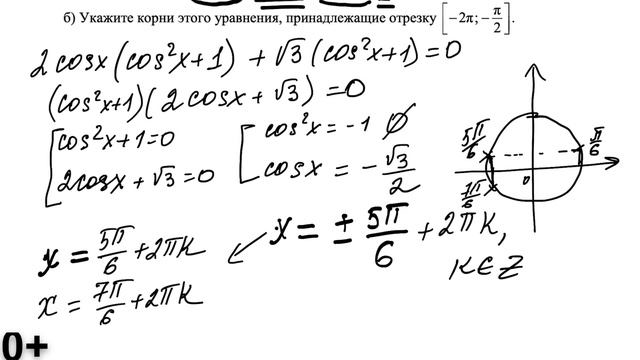 б) Укажите корни этого уравнения, принадлежащие отрезку [−2π; −π/2].
2cosx(cos²x+1) + √3(cos²x+1)=0
(cos²x+1)(2cosx+√3)=0
[cos²x+1=0 [cos²x = -1 ∅
2cosx+√3=0 cosx = -√3/2
5π/6 π/6
7π/6 0
x = ± 5π/6 + 2πk,
k∈Z
x = 5π/6 + 2πk
x = 7π/6 + 2πk
0+